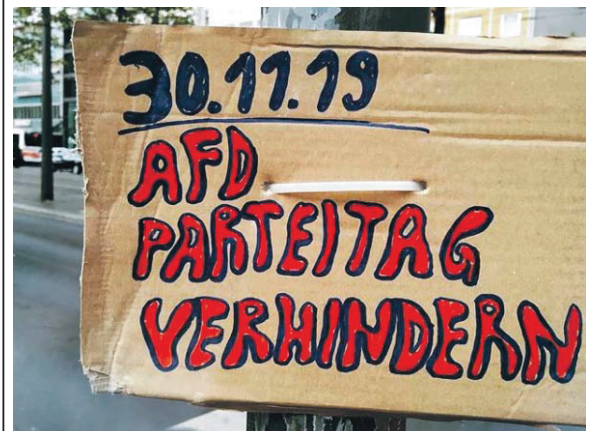 30.11.19
AFD
PARTEITAG
VERHINDERN